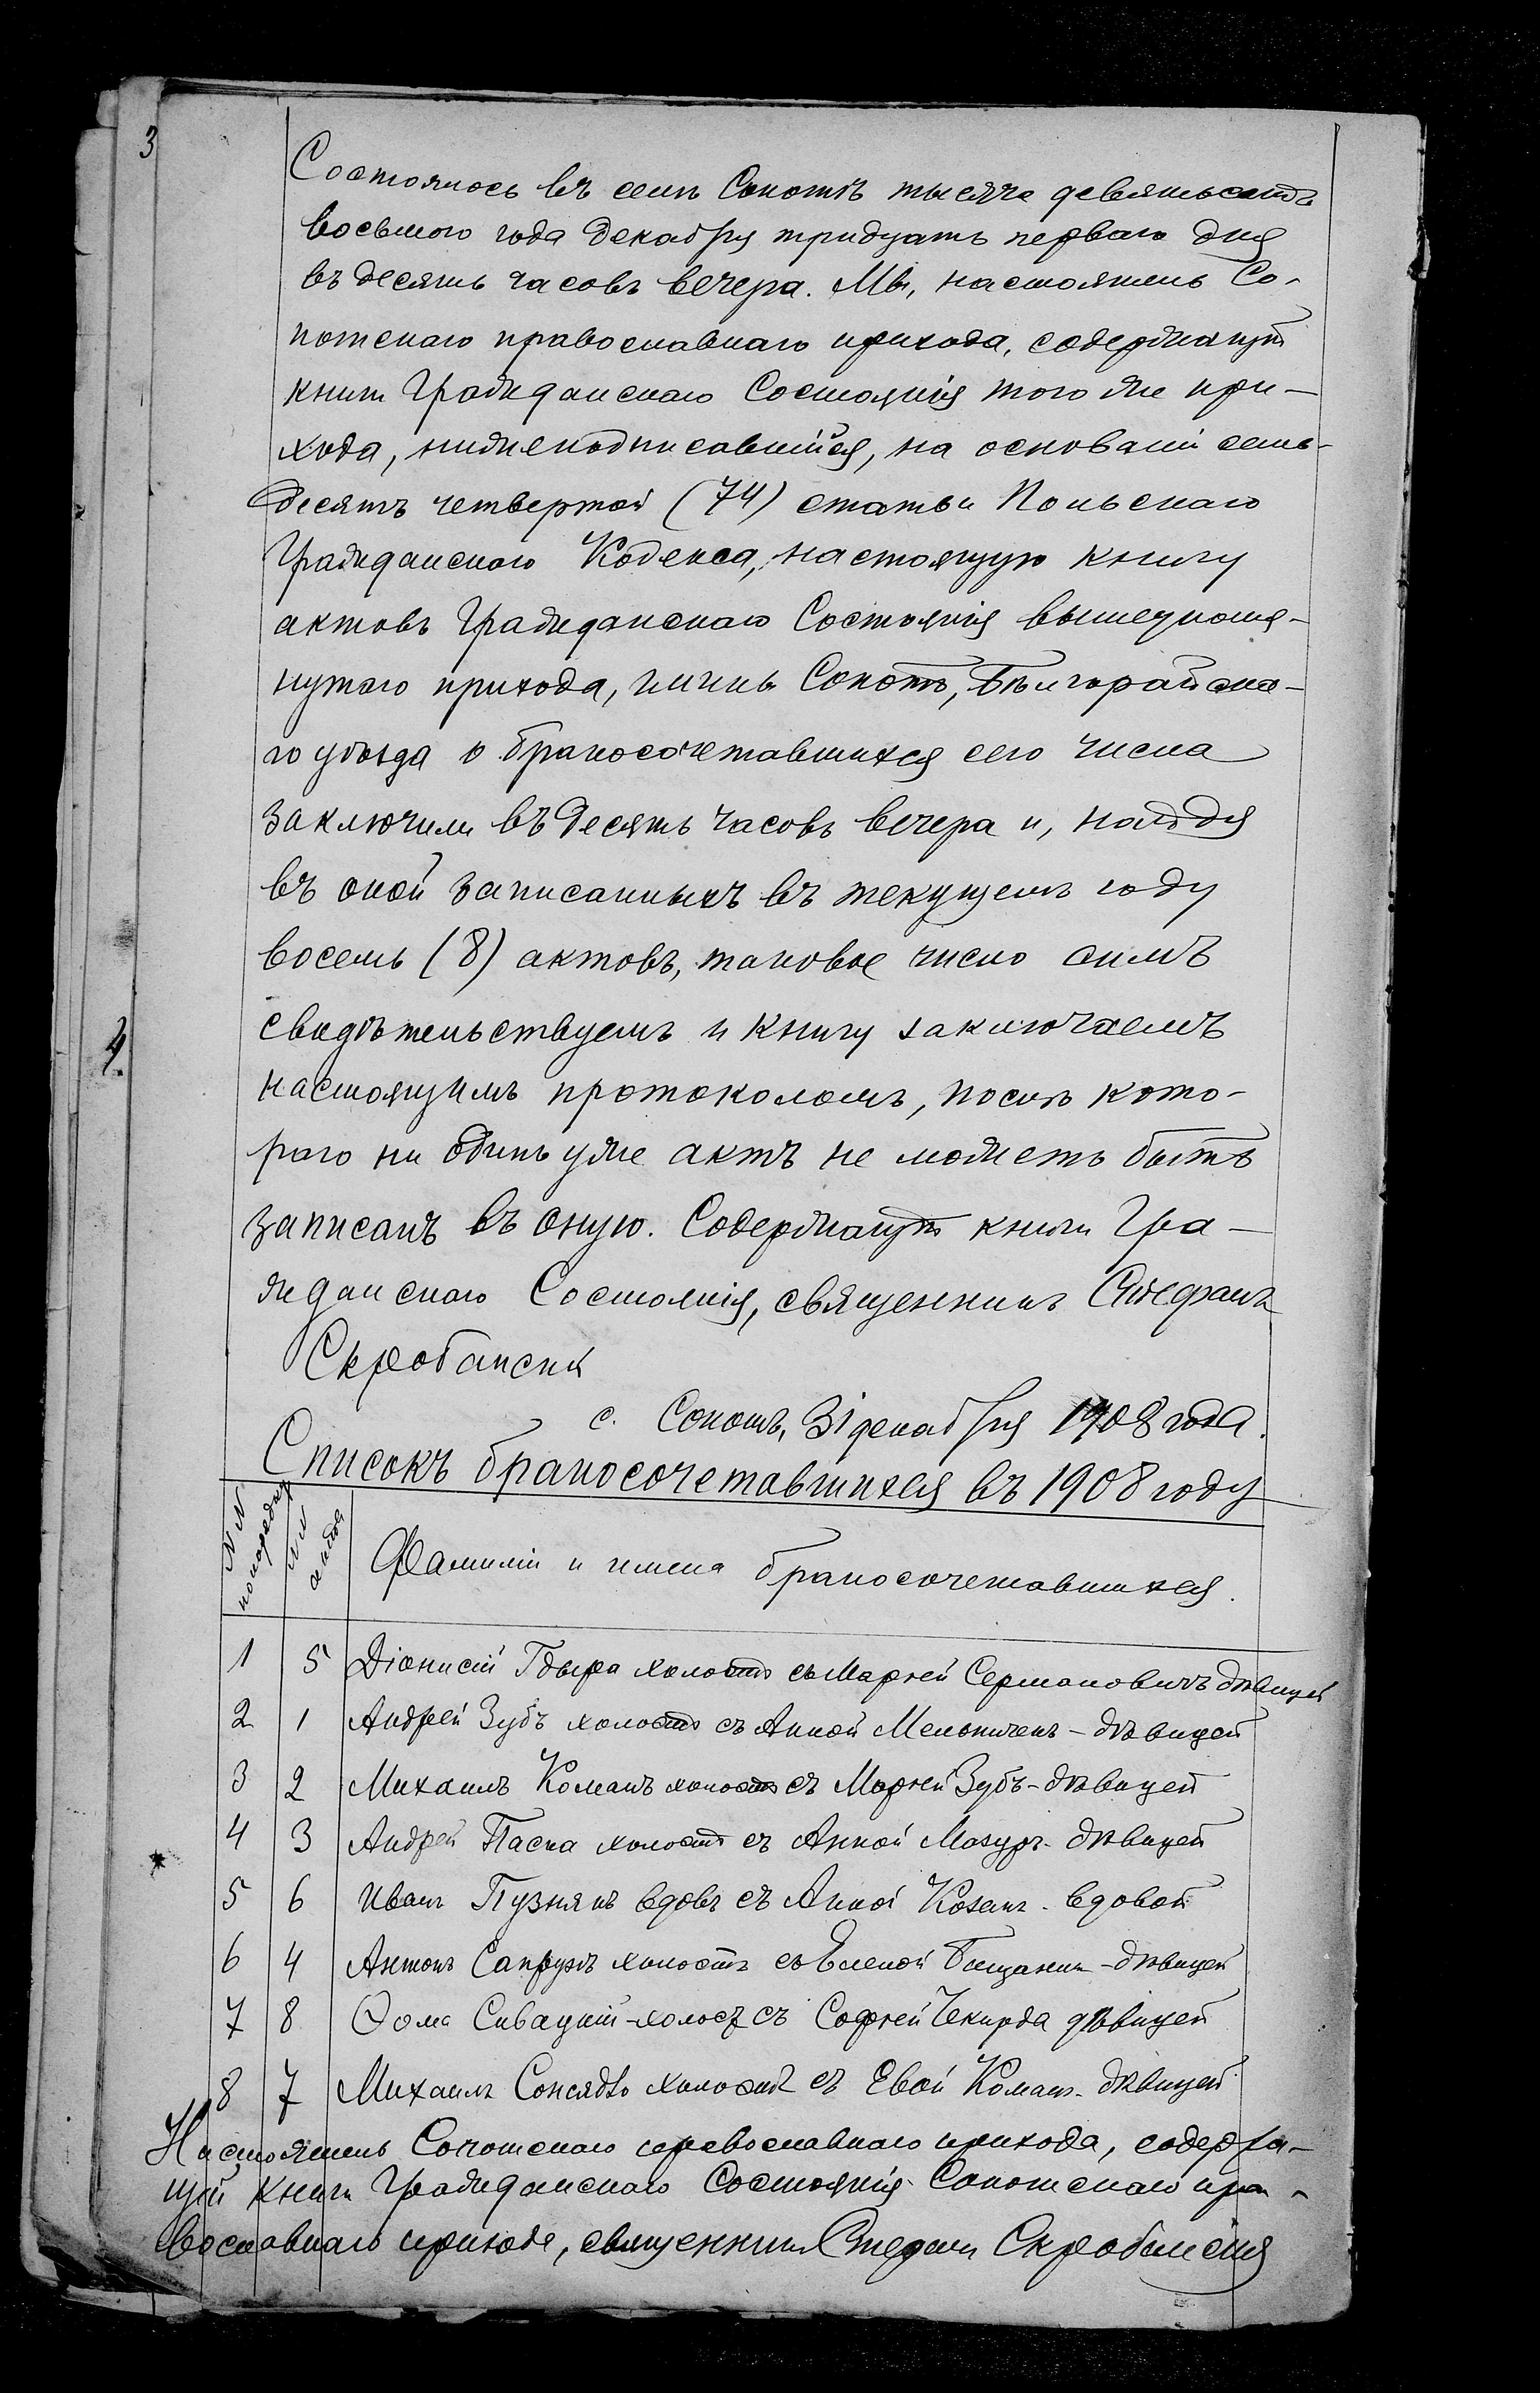 3
Состоялось въ селѣ Сопотѣ тысяча девятьсотъ
восьмого года Декабря тридцать перваго дня
въ десять часовъ вечера. Мы, настоятель Со-
потскаго православнаго прихода, содержащій
книги Гражданскаго Состоянія того же при-
хода, нижеподписавшійся, на основаніи семь-
десятъ четвертой (74) статьи Польскаго
Гражданскаго Кодекса, настоящую книгу
актовъ Гражданскаго Состоянія вышеупомя-
нутаго прихода, гмины Сопотъ, Бѣлгорайска-
го уѣзда о бракосочетавшихся сего числа
заключили въ десять часовъ вечера и, найдя
въ оной записанныхъ въ текущемъ году
восемь (8) актовъ, таковое число симъ
свидѣтельствуемъ и книгу заключаемъ
4.
настоящимъ протоколомъ, послѣ кото-
раго ни одинъ уже актъ не можетъ быть
записанъ въ оную. Содержащій книги Гра-
жданскаго Состоянія, священникъ Стефанъ
Скробанскій
с. Сопотъ, 31 декабря 1908 года.
Списокъ бракосочетавшихся въ 1908 году
NN по порядку NN акта Фамиліи и имена бракосочетавшихся.
1 5 Діонисій Гдыра холостъ съ Маріей Сермановичъ дѣвицей
2 1 Андрей Зубъ холостъ съ Анной Мельничекъ - дѣвицей
3 2 Михаилъ Команъ холостъ съ Маріей Зубъ - дѣвицей
4 3 Андрей Паска холостъ съ Анной Мазуръ - дѣвицей
5 6 Иванъ Пузнякъ вдовъ съ Анной Козакъ - вдовой
6 4 Антонъ Сапругъ холостъ съ Еленой - дѣвицей
7 8 Ѳома Сивацкій - холостъ съ Софіей Чекирда дѣвицей
8 7 Михаилъ холостъ съ Евой Команъ - дѣвицей
Настоятель Сопотскаго православнаго прихода, содержа-
щій книги Гражданскаго Состоянія Сопотскаго пра-
вославнаго прихода, священникъ Стефанъ Скробанскій